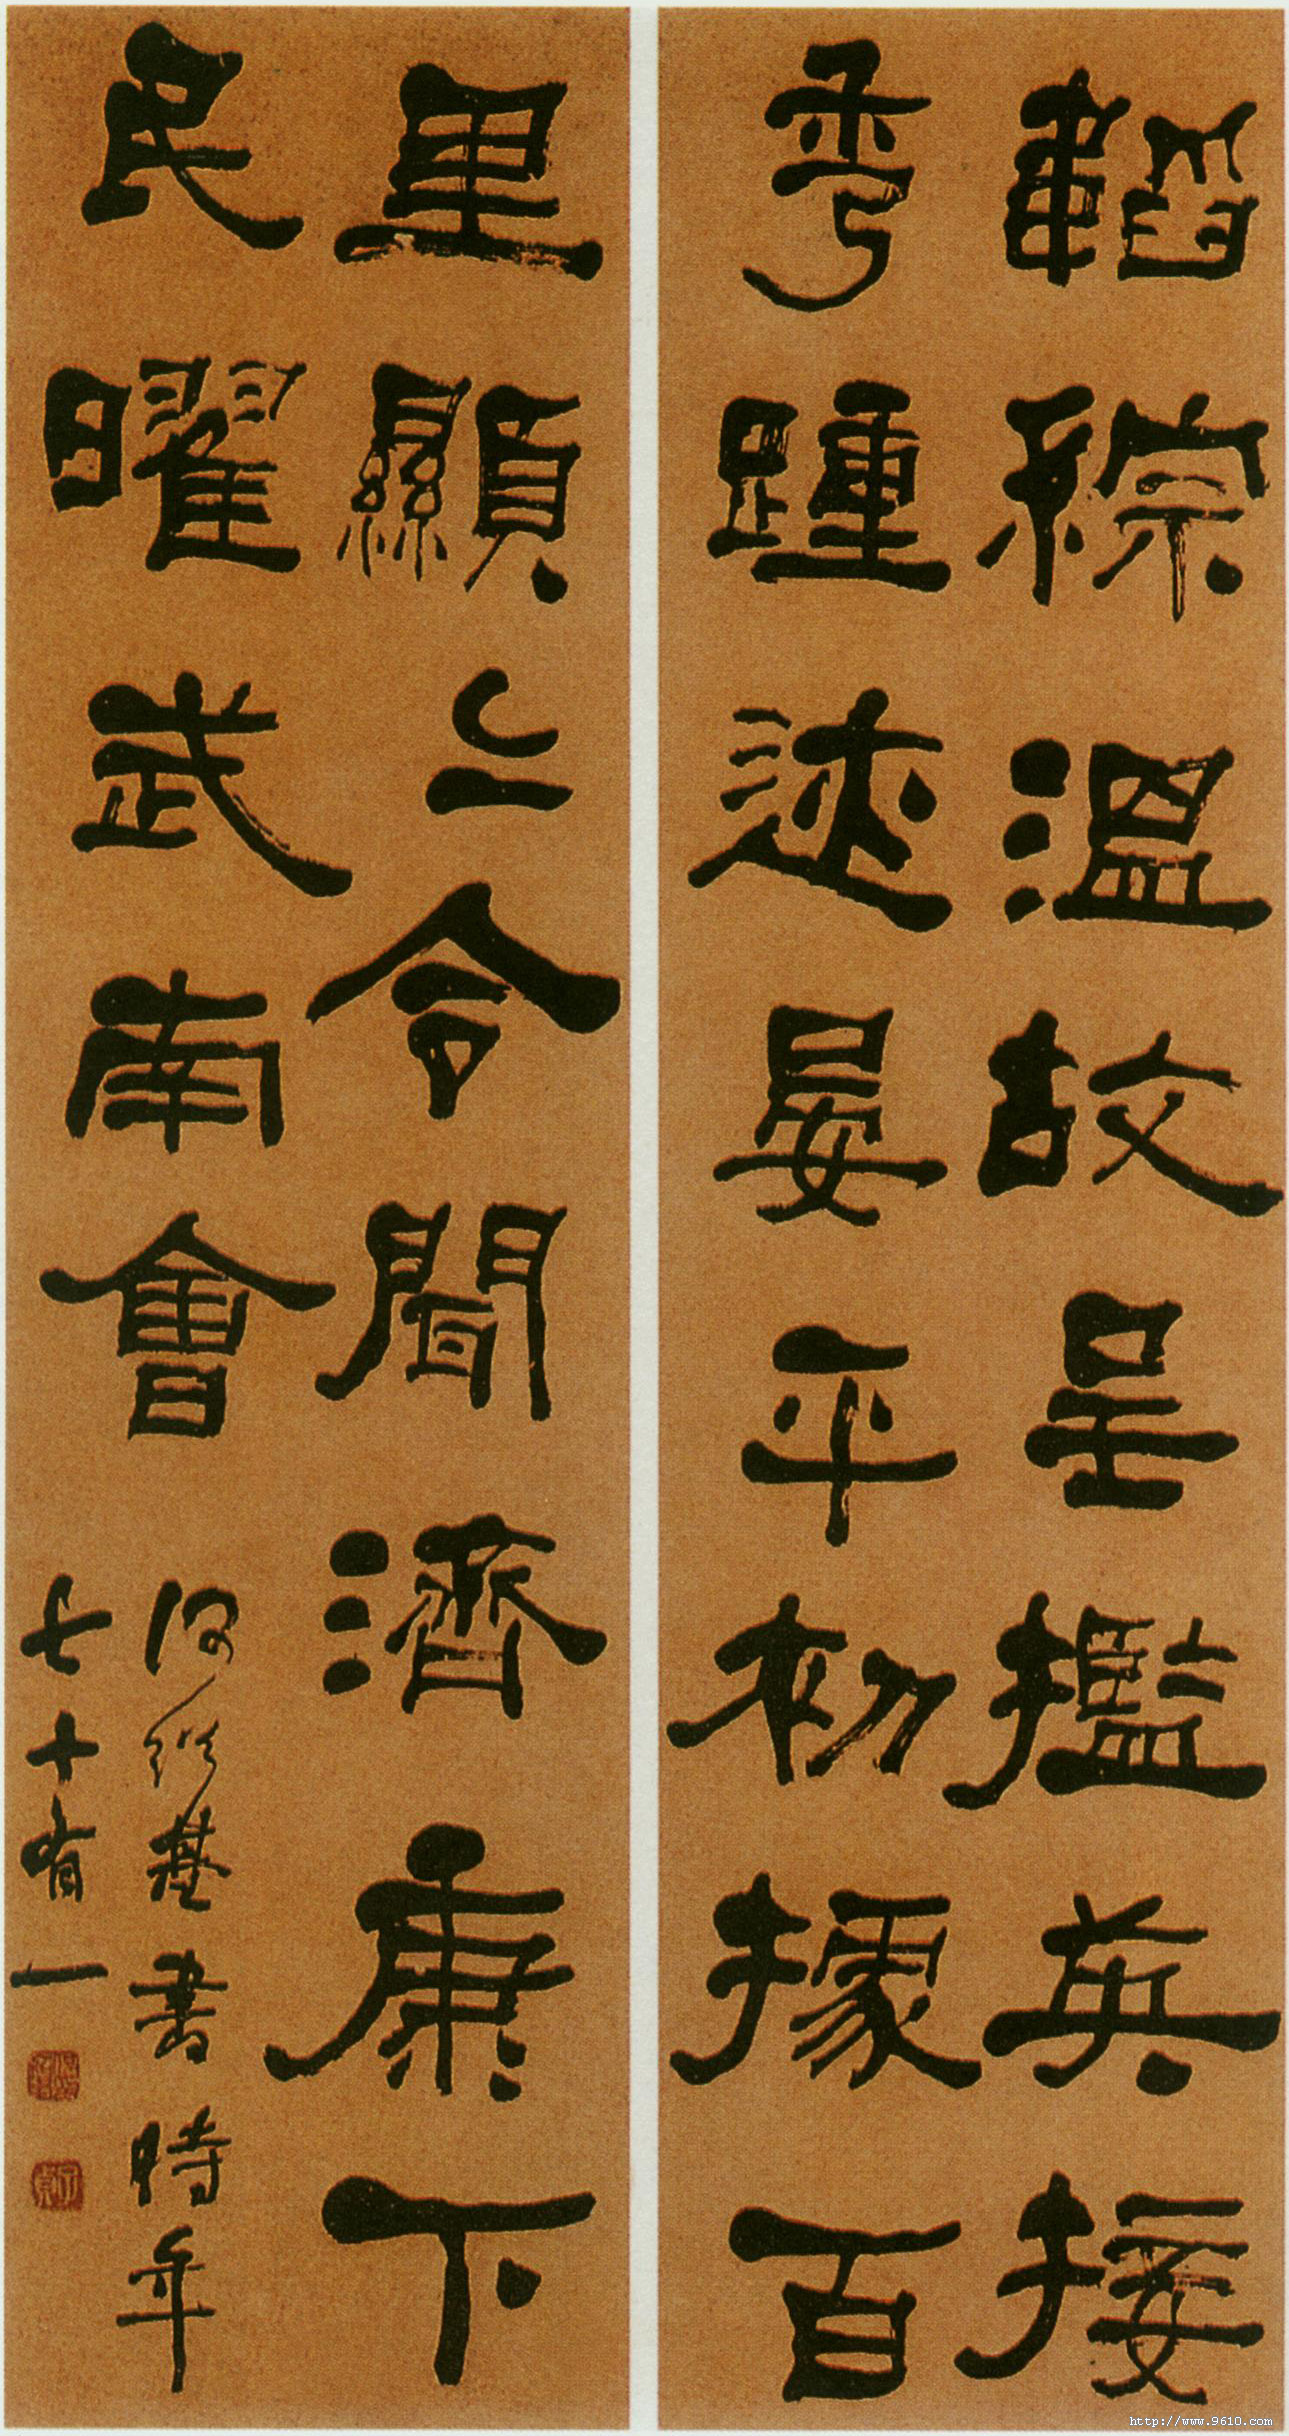 韜綜溫故呈㩜英接
秀踵迹晏平初據百
里顯〻令聞濟康下
民曜武南會
何紹基書時年
七十有一
http://www.9610.com/